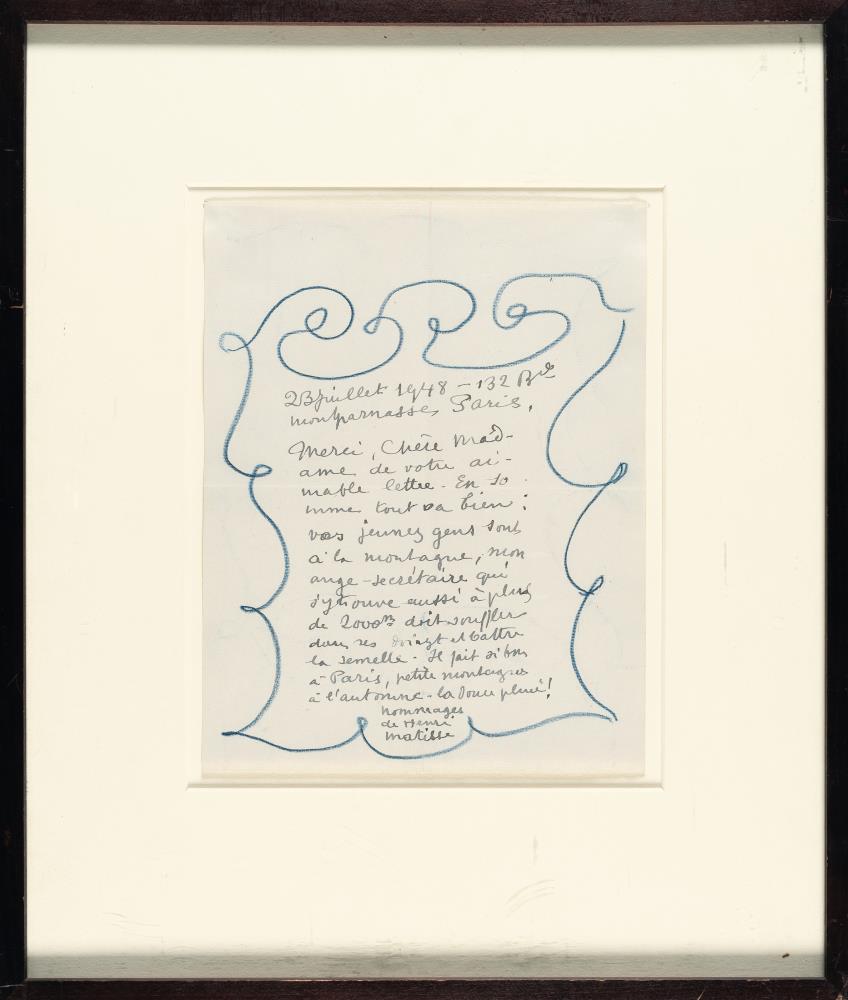 23 juillet 1948 - 132 Bd
montparnasse, Paris.
Merci, Chère Mad-
ame de votre ai-
mable lettre. En so
mme tout va bien :
vos jeunes gens sont
à la montagne, mon
ange-secrétaire qui
s'y trouve aussi à plus
de 2000m doit souffler
dans ses doigts et battre
la semelle. Il fait si bon
à Paris, petite montagnes
à l'automne. la douce pluie!
hommages
de Henri
Matisse